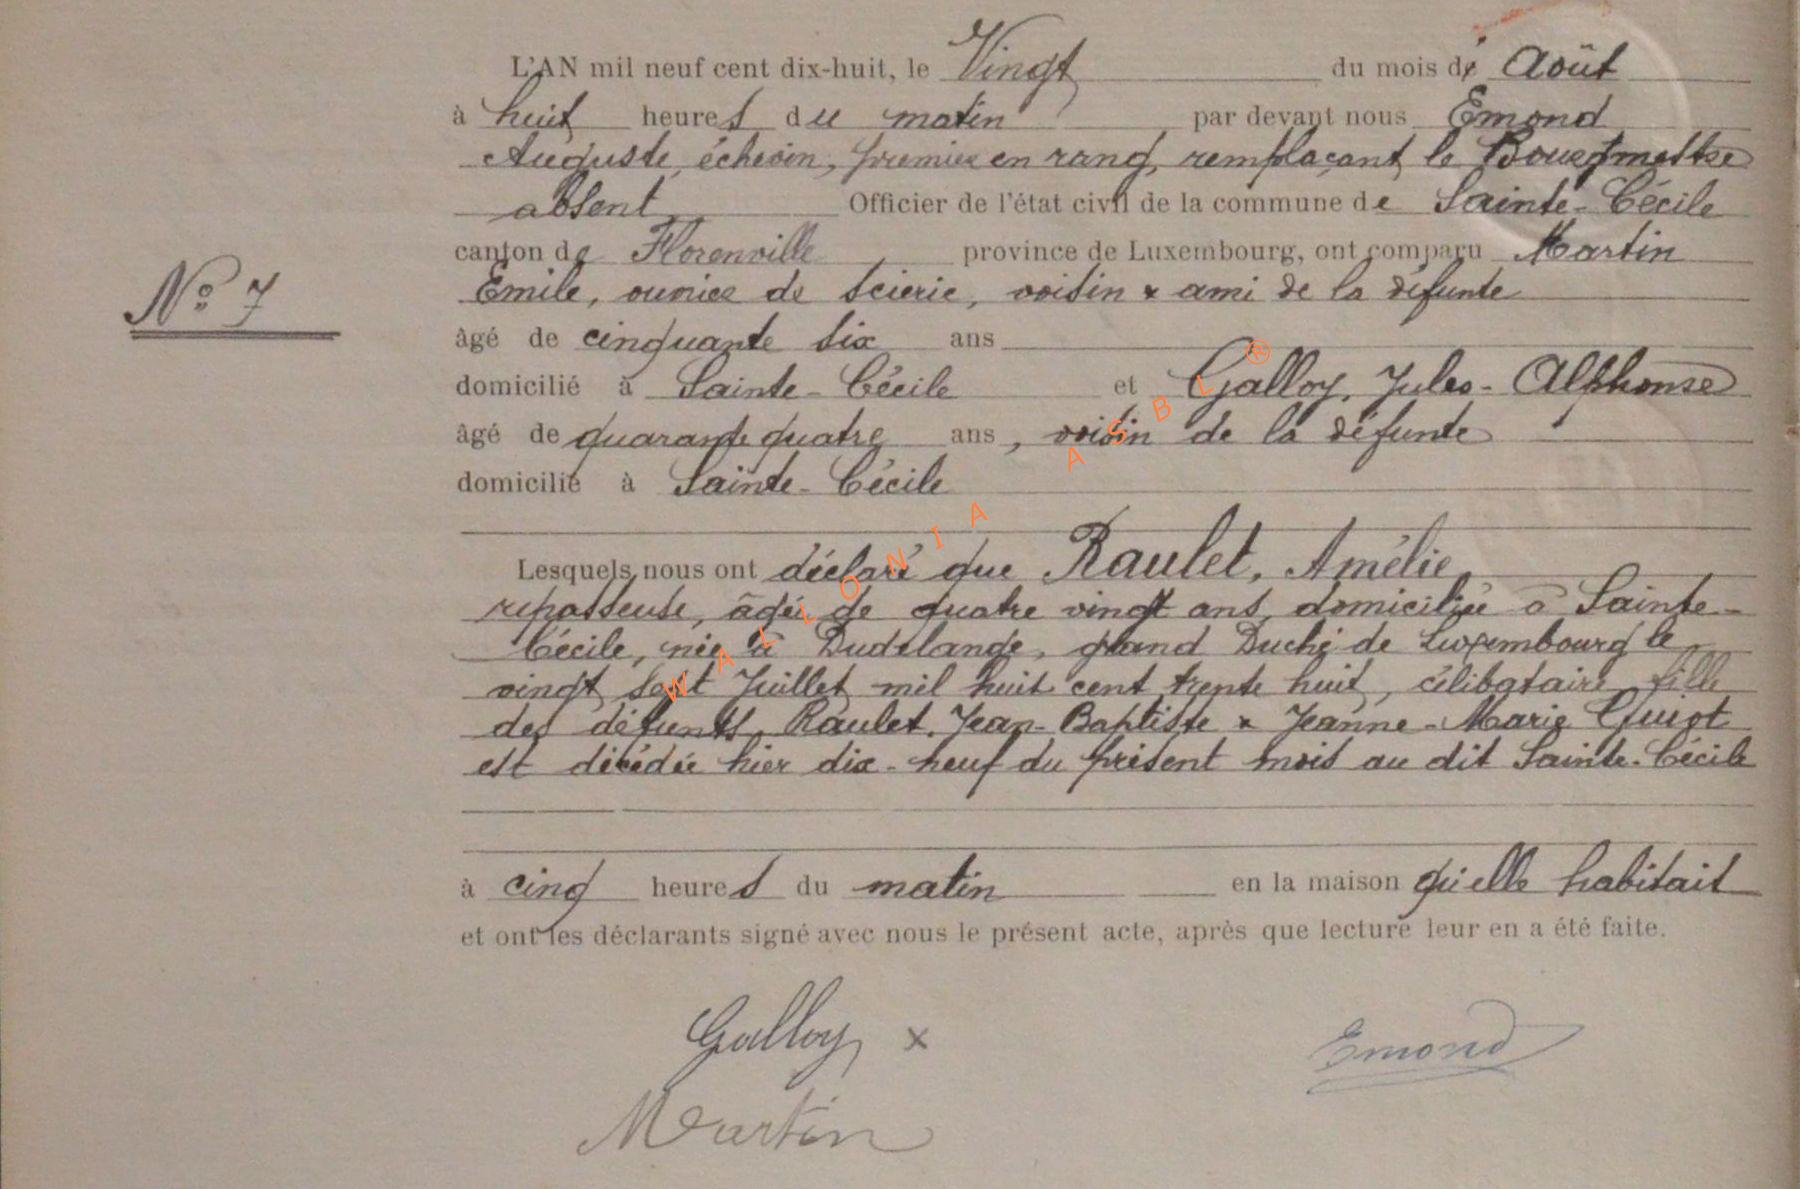 L'AN mil neuf cent dix-huit, le Vingt du mois de Août
à huit heures du matin par devant nous Emond
Auguste, échevin, premier en rang, remplaçant le Bourgmestre
absent Officier de l'état civil de la commune de Sainte-Cécile
canton de Florenville province de Luxembourg, ont comparu Martin
Emile, ouvrier de scierie, voisin & ami de la défunte
N° 7
âgé de cinquante six ans
domicilié à Sainte-Cécile et Galloy, Jules-Alphonse
âgé de quarante quatre ans, voisin de la défunte
domicilié à Sainte-Cécile
Lesquels nous ont déclaré que Raulet, Amélie,
repasseuse, âgée de quatre vingt ans, domiciliée à Sainte-
Cécile, née à Dudelange, grand Duché de Luxembourg le
vingt sept Juillet mil huit cent trente huit, célibataire, fille
des défunts, Raulet, Jean-Baptiste & Jeanne-Marie Guiot
est décédée hier dix-neuf du présent mois au dit Sainte-Cécile
à cinq heures du matin en la maison qu'elle habitait
et ont les déclarants signé avec nous le présent acte, après que lecture leur en a été faite.
Galloy x
Emond
Martin
WALLONIA ASBL ®